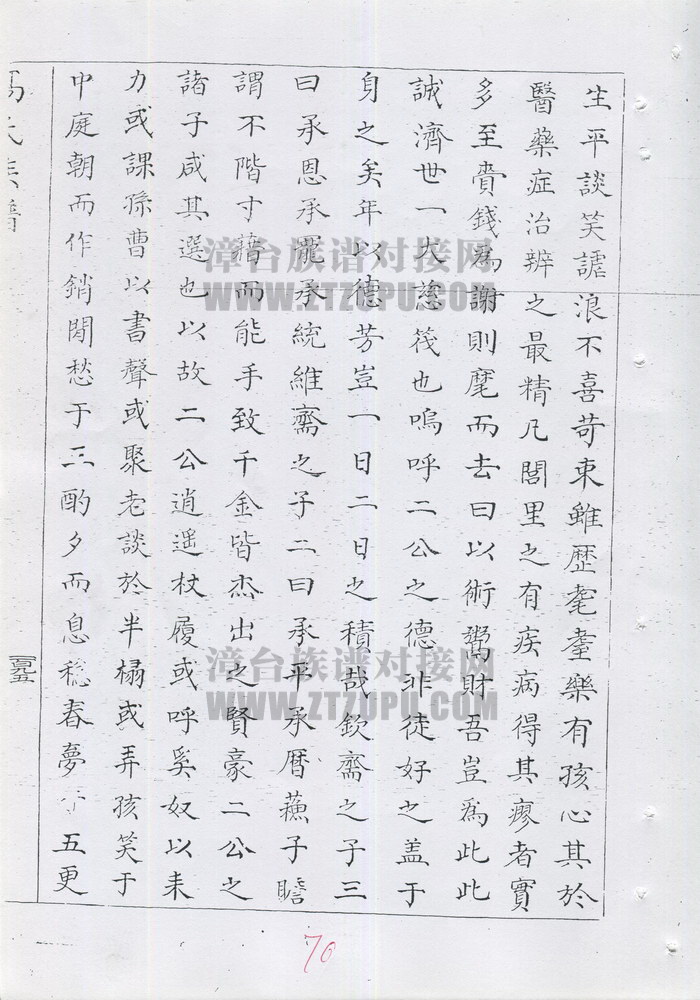 生平談笑謔浪不喜苛束雖歷耄耋樂有孩心其於
醫藥症治辨之最精凡閭里之有疾病得其瘳者實
多至賫錢為謝則麾而去曰以術鬻財吾豈為此此
誠濟世一大慈筏也嗚呼二公之德非徒好之盖于
身之矣年以德芳豈一日二日之積哉欽齋之子三
曰承恩承罷承統維齋之子二曰承平承曆蘓子瞻
謂不階寸藉而能手致千金皆杰出之賢豪二公之
諸子咸其選也以故二公逍遥杖履或呼奚奴以耒
力或課孫曹以書聲或聚老談於半榻或弄孩笑于
中庭朝而作銷閑愁于三酌夕而息稳春夢于五更
氏族譜
一百九五
漳台族谱对接网
WWW.ZTZUPU.COM
漳台族谱对接网
WWW.ZTZUPU.COM
70